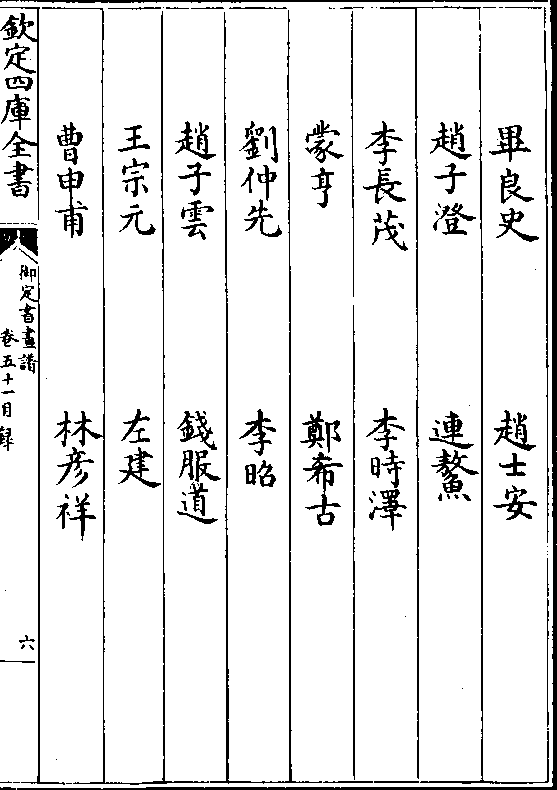 畢良史 趙士安
趙子澄 連鰲
李長茂 李時澤
蒙亨 鄭希古
劉仲先 李昭
趙子雲 錢服道
王宗元 左建
曹申甫 林彦祥
欽定四庫全書
御定書畫譜
卷五十一目録
六